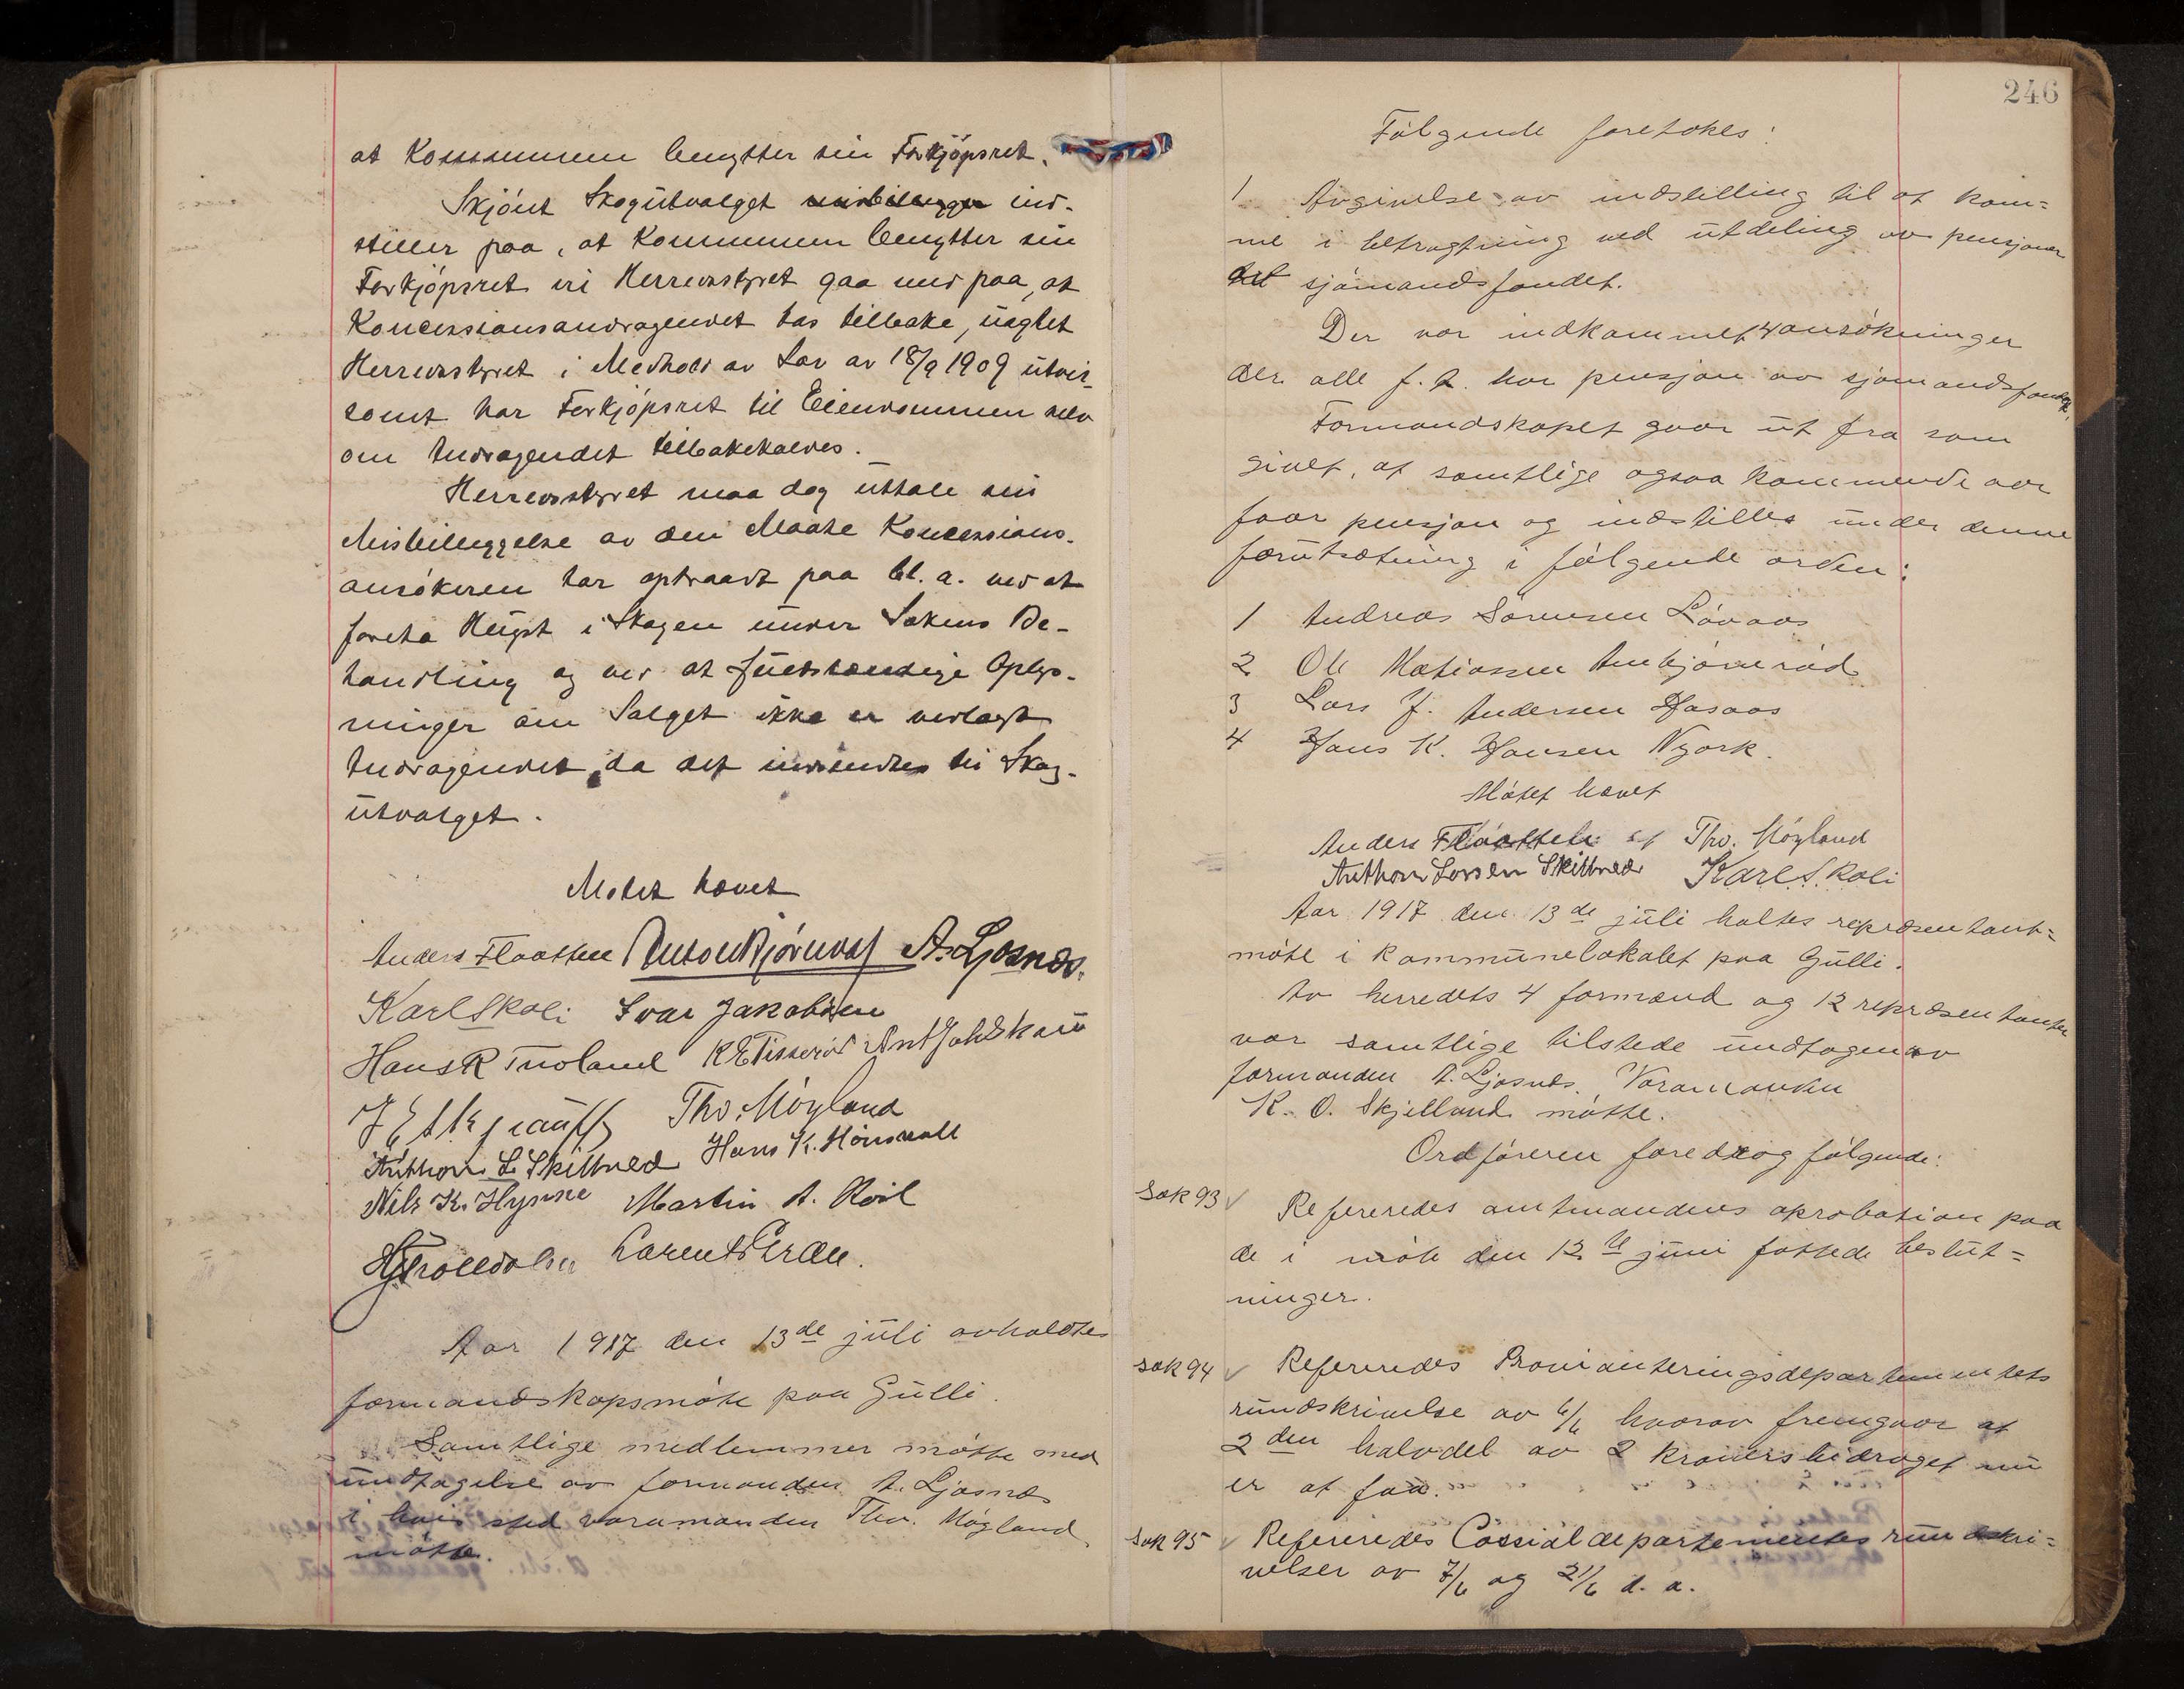 at Kommunen benytter sin Forkjöpsret.
Skjönt Skogutvalget misbilliger ind-
stiller paa, at Kommunen benytter sin
Forkjöpsret vil Herredsstyret gaa med paa, at
Koncessionsandragendet tas tilbake, uagtet
Herredsstyret i Medhold av Lov av 18/9 1909 utvil-
somt har Forkjöpsret til Eiendommen selv
om Andragendet tilbakekaldes.
Herredsstyret maa dog uttale sin
Misbilliggelse av den Maate Koncessions-
ansökeren har optraadt paa bl. a. ved at
foreta Hugst i Skogen under Sakens Be-
handling og ved at fuldstændige Oplys-
ninger om Salget ikke er vedlagt
Andragendet, da det indsendtes til Skog-
utvalget.
Mötet hævet
Anders Flaatten Anton Bjørnvaf A. Ljosnæs.
Karl Skoli Ivar Jakobsen
Hans R Tuoland K E Tisseröd Ant Joh Skau
Tho. Möyland
Anthon L. Skittved Hans K. Hönsvall
Nils K. Hynne Martin A. Röil
H Trolldalen Laurents Erdei.
Aar 1917 den 13de juli avholdtes
formandskapsmöte paa Gulli.
Samtlige medlemmer mötte med
undtagelse av formanden A. Ljosnæs
i hvis sted varamanden Thv. Mögland
mötte.
246
Fölgende foretokes:
1 Avgivelse av indstilling til at kom=
me i betragtning ved utdeling av pensjoner
sjömandsfondet.
Der var indkommet 4 ansökninger
der alle f. t. har pensjon av sjömandsfondet.
Formandskapet gaar ut fra som
givet, at samtlige ogsaa kommende aar
faar pensjon og indstilles under denne
forutsætning i fölgende orden:
1 Andreas Sörensen Lövaas
2 Ole Matiassen Ambjörnröd
3 Lars J. Andersen Hasaas
4 Hans K. Hansen Nyork.
Mötet hævet
Anders Flaatten Tho. Möyland
Anthon Larsen Skittved Karl Skoli
Aar 1917 den 13de juli holtes repræsentant=
möte i kommunelokalet paa Gulli.
Av herredets 4 formænd og 12 repræsentanter
var samtlige tilstede undtagen av
formanden A. Ljosnæs. Varamanden
K. O. Skjelland mötte.
Ordföreren foredrog fölgende:
Sak 93 ✓ Refereredes amtmandens aprobation paa
de i möte den 12te juni fattede beslut=
ninger.
Sak 94 ✓ Refereredes Provianteringsdepartementets
rundskrivelse av 6/6 hvorav fremgaar at
2den halvdel av 2 kronersbidraget nu
er at faa.
Sak 95 ✓ Refereredes Cossialdepartementes rundskri=
velser av 7/6 og 21/6 d. a.